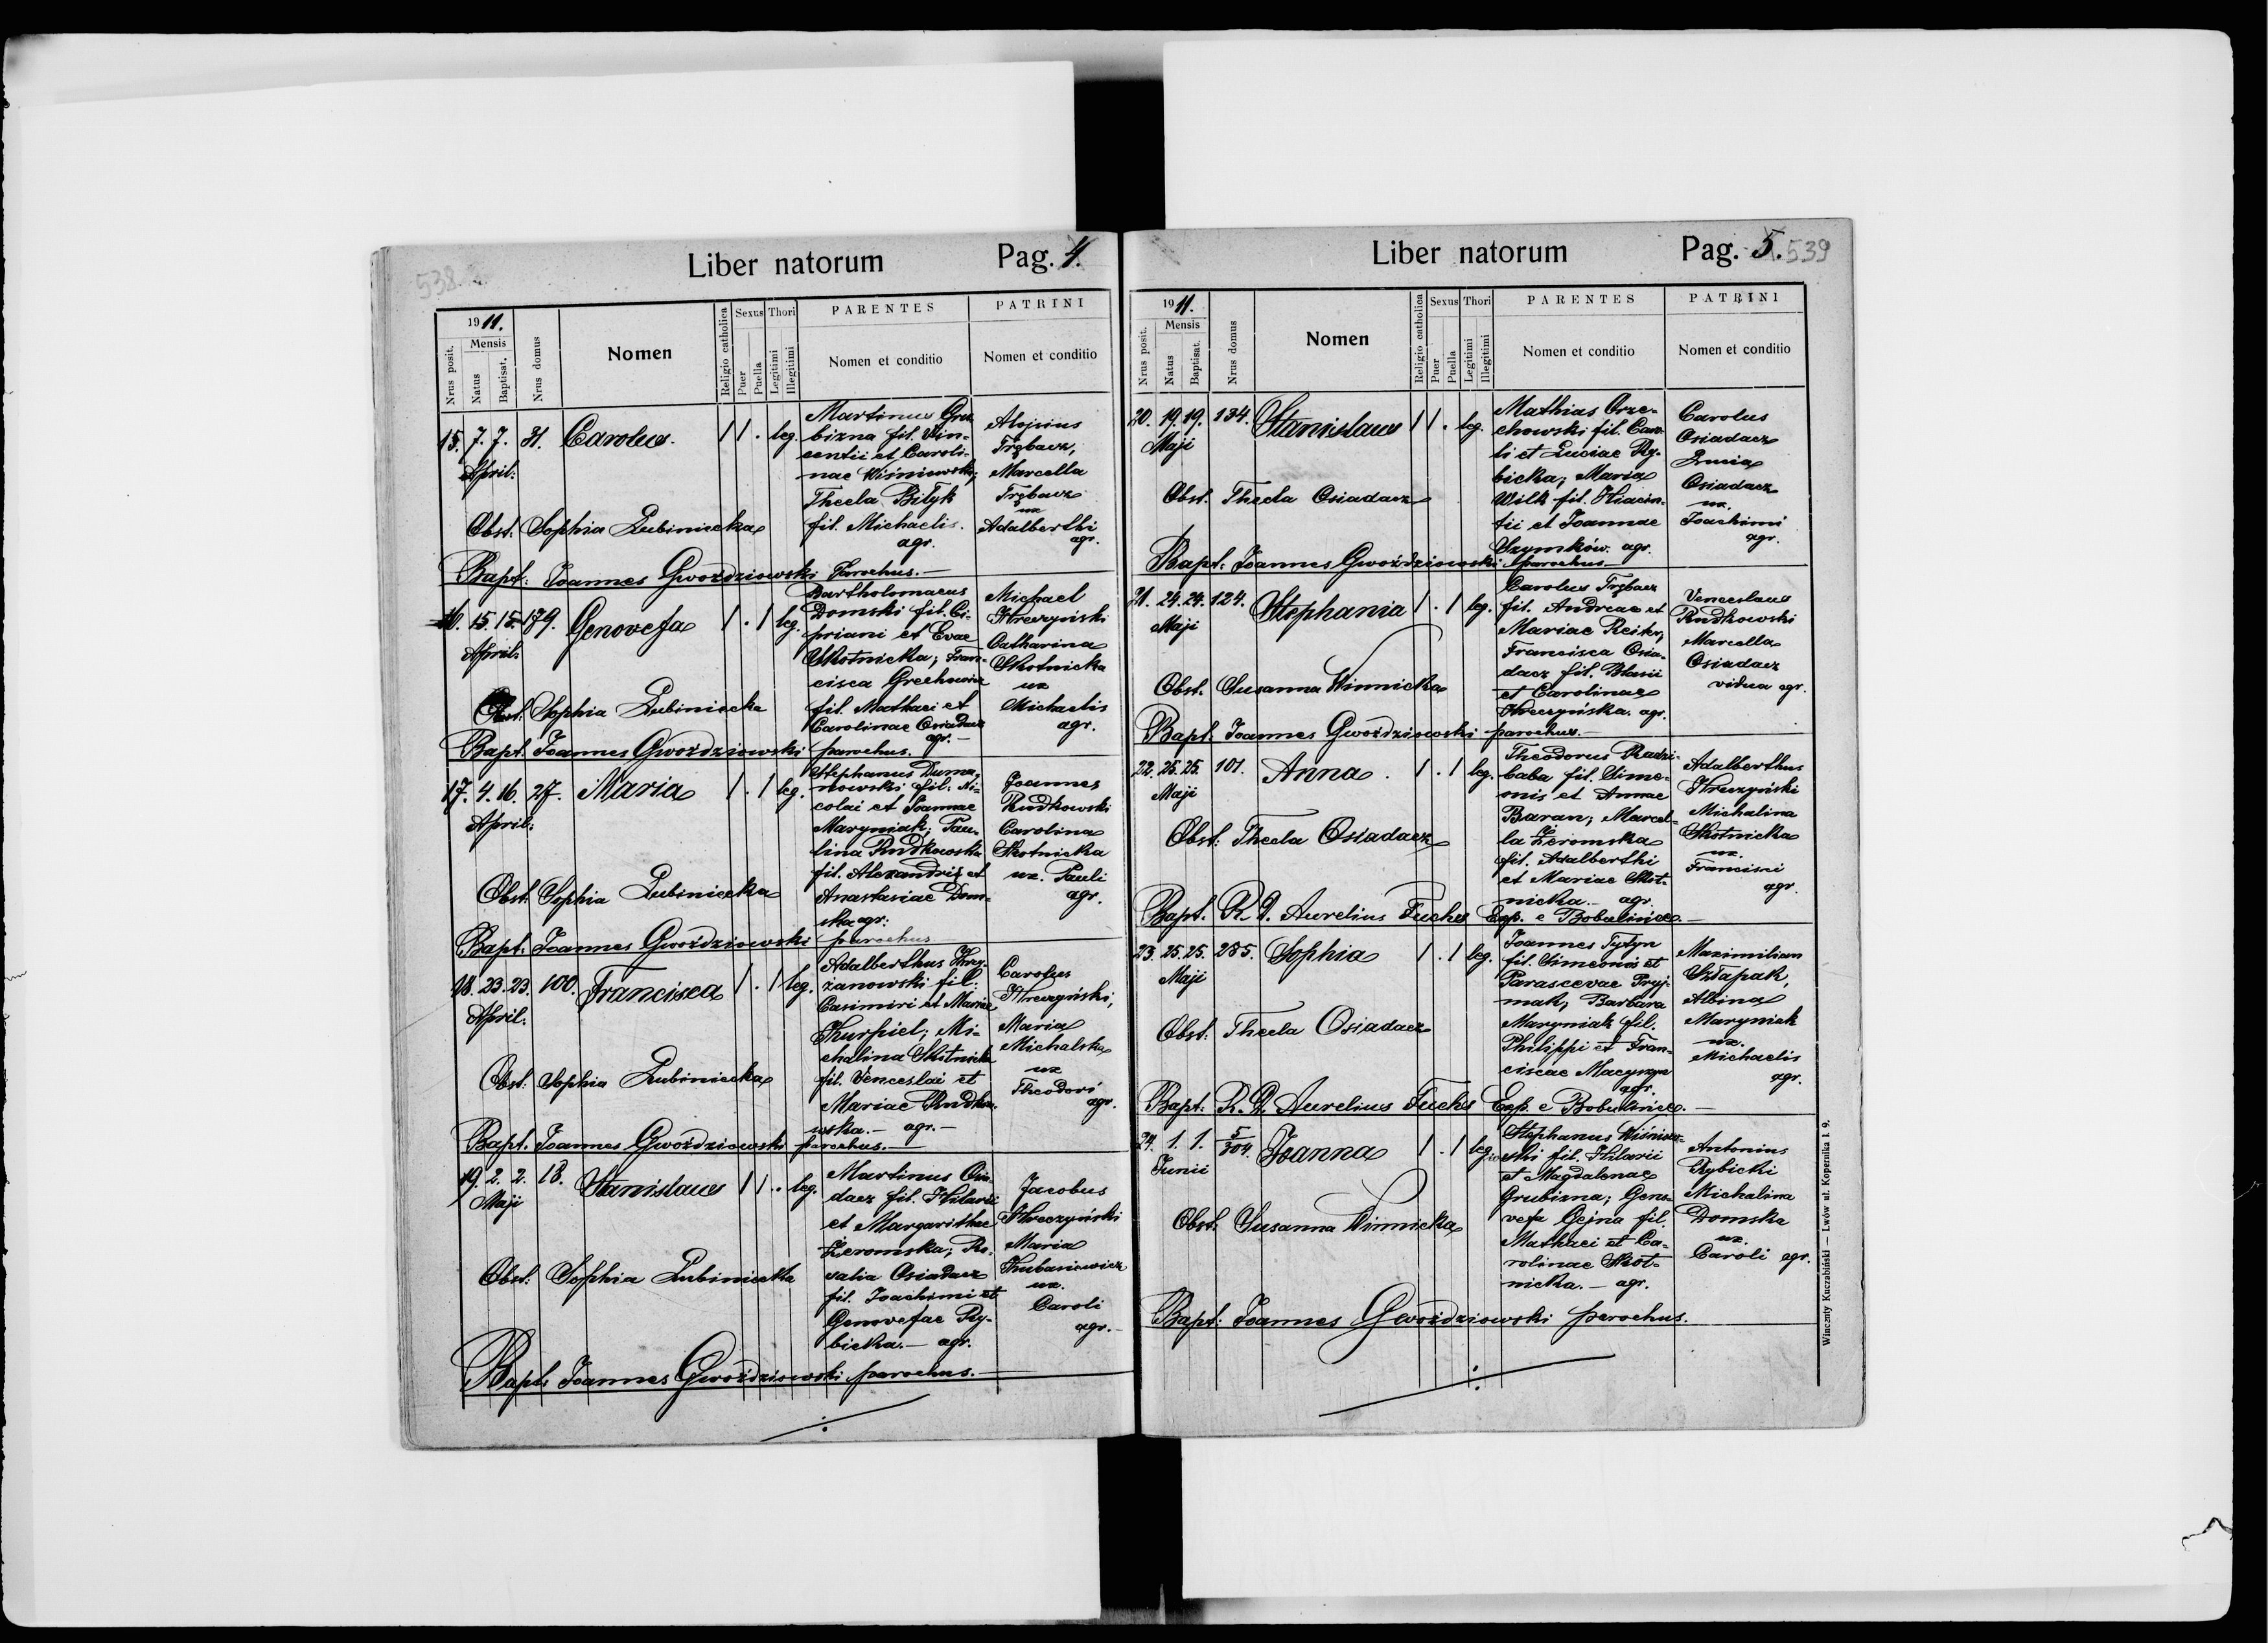 538
Liber natorum
Pag. 4.
1911.
Mensis
Nrus posit.
Natus
Baptisat.
Nrus domus
Nomen
Religio catholica
Sexus
Puer
Puella
Thori
Legitimi
Illegitimi
PARENTES
Nomen et conditio
PATRINI
Nomen et conditio
15. 7. 7. 31. Carolus. 1 1 . leg.
April:
Martinus Gru-
bizna fil. Vin-
centii et Caroli-
nae Wiśniowska;
Thecla Bilyk
fil. Michaelis.
agr.
Aloisius
Trębacz,
Marcella
Trębacz
ux
Adalberthi
agr.
Obst: Sophia Lubiniecka
Bapt: Joannes Gwoździowski Parochus.—
16. 15. 15. 179. Genovefa 1 . 1 leg.
April:
Bartholomaeus
Domski fil. Ci-
priani et Evae
Skotnicka; Fran-
cisca
fil. Mathaei et
Carolinae Osiadacz
agr.—
Michael
Hreczyński
Catharina
Skotnicka
ux
Michaelis
agr.
Obst: Sophia Lubiniecka
Bapt. Joannes Gwoździowski parochus.
17. 4. 16. 27. Maria 1 . 1 leg.
April:
Stephanus Duma-
nowski fil. Ni-
colai et Joannae
Maryniak; Pau-
lina Rudkowska
fil. Alexandri et
Anastasiae Dom-
ska agr:
Joannes
Rudkowski
Carolina
Skotnicka
ux. Pauli
agr.
Obst: Sophia Lubiniecka
Bapt: Joannes Gwoździowski parochus
18. 23. 23. 100. Francisca 1 . 1 leg.
April:
Adalberthus
zanowski fil:
Casimiri et Mariae
Kurpiel; Mi-
chalina Skotnicka
fil. Venceslai et
Mariae Rudko-
wska.— agr.—
Carolus
Hreczyński,
Maria
Michalska
ux
Theodori
agr.
Obst: Sophia Lubiniecka
Bapt. Joannes Gwoździowski parochus.—
19. 2. 2. 18. Stanislaus 1 1 . leg.
Maji
Martinus Osia-
dacz fil. Hilarii
et Margarithae
Żeromska; Ro-
salia Osiadacz
fil. Joachimi et
Genovefae Ry-
bicka.— agr.
Jacobus
Hreczyński
Maria
Kubasiewicz
ux.
Caroli
agr.—
Obst: Sophia Lubiniecka
Bapt: Joannes Gwoździowski parochus.—
Liber natorum
Pag. 5.
539
1911.
Mensis
Nrus posit.
Natus
Baptisat.
Nrus domus
Nomen
Religio catholica
Sexus
Puer
Puella
Thori
Legitimi
Illegitimi
PARENTES
Nomen et conditio
PATRINI
Nomen et conditio
20. 19. 19. 134. Stanislaus 1 1 . leg.
Maji
Mathias Orze-
chowski fil. Caro-
li et Luciae Ry-
bicka; Maria
Wilk fil. Hiacin-
tii et Joannae
Szymków. agr.
Carolus
Osiadacz
Osiadacz
ux.
Joachimi
agr.
Obst. Thecla Osiadacz
Bapt: Joannes Gwoździowski parochus—
21. 24. 24. 124. Stephania 1 . 1 leg.
Maji
Carolus Trębacz
fil. Andreae et
Mariae
Francisca Osia-
dacz fil. Blasii
et Carolinae
Hreczyńska. agr.
Venceslaus
Rudkowski
Marcella
Osiadacz
vidua agr.
Obst. Susanna Winnicka
Bapt. Joannes Gwoździowski parochus.—
22. 25. 25. 101. Anna . 1 . 1 leg.
Maji
Theodorus Radzi-
baba fil. Simo-
nis et Annae
Baran; Marcel-
la Żeromska
fil. Adalberthi
et Mariae Skot-
nicka.— agr.
Adalberthus
Hreczyński
Michalina
Skotnicka
ux.
Francisci
agr.
Obst: Thecla Osiadacz
Bapt. R. D. Aurelius Fuchs Exp. e Bobulince.—
23. 25. 25. 285. Sophia 1 . 1 leg.
Maji
Joannes Tytyn
fil. Simeonis et
Parascevae Pryj-
mak; Barbara
Maryniak fil.
Philippi et Fran-
ciscae Macyszyn
agr.
Maximilian
Szłapak,
Albina
Maryniak
ux.
Michaelis
agr.
Obst: Thecla Osiadacz
Bapt: R. D. Aurelius Fuchs Exp. e Bobulince.—
24. 1. 1. 5/304. Joanna 1 . 1 leg.
Junii
Stephanus Wiśniow-
ski fil. Hilarii
et Magdalenae
Grubizna; Geno-
vefa Gejna fil.
Mathaei et Ca-
rolinae Skot-
nicka.— agr.
Antonius
Rybicki
Michalina
Domska
ux.
Caroli agr.
Obst: Susanna Winnicka
Bapt: Joannes Gwoździowski parochus.
Winczenty Kuczabiński — Lwów ul. Kopernika l. 9.